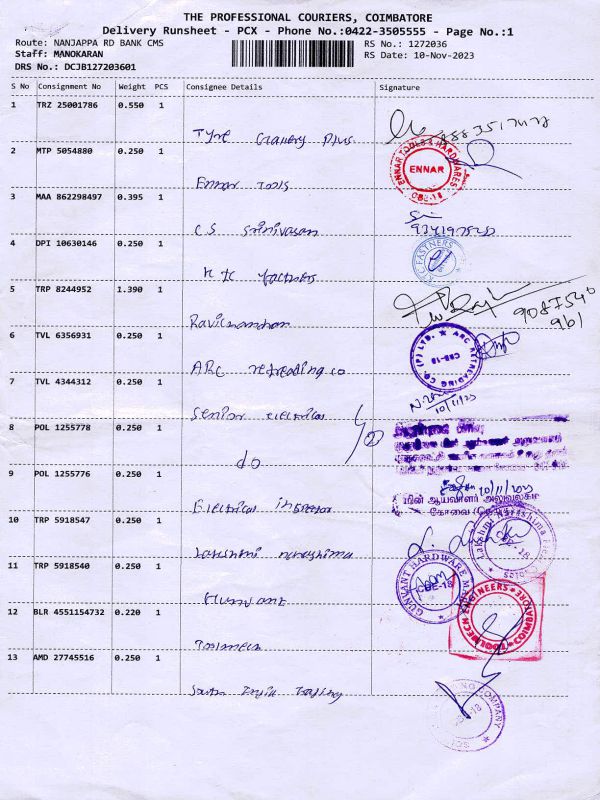 THE PROFESSIONAL COURIERS, COIMBATORE
Delivery Runsheet - PCX - Phone No.:0422-3505555 - Page No.:1
Route: NANJAPPA RD BANK CMS
RS No.: 1272036
Staff: MANOKARAN
RS Date: 10-Nov-2023
DRS No.: DCJB127203601
S No Consignment No Weight PCS Consignee Details Signature
1 TRZ 25001786 0.550 1
Tyre Gallery Plus
2 MTP 5054880 0.250 1
ENNAR TOOLS & HARDWARES
ENNAR
CBE-18
Ennar Tools
3 MAA 862298497 0.395 1
CS Srinivasan
4 DPI 10630146 0.250 1
FASTNERS
5 TRP 8244952 1.390 1
Ravichandran
9087540
961
6 TVL 6356931 0.250 1
ARC RETREADING CO. (P) LTD.
CBE-18
ARC retreading co
7 TVL 4344312 0.250 1
10/11/23
Senior electrical
8 POL 1255778 0.250 1
do
9 POL 1255776 0.250 1
மின் ஆய்வாளர் அலுவலகம்
கோவை
Electrical inspector
10 TRP 5918547 0.250 1
Lakshmi Narashima
CBE-18
Lakshmi narashima
11 TRP 5918540 0.250 1
GUNVANT HARDWARE
CBE-18
Gunvant
12 BLR 4551154732 0.220 1
TOOLMECH ENGINEERS
COIMBATORE
Toolmech
13 AMD 27745516 0.250 1
South India Trading
COMPANY